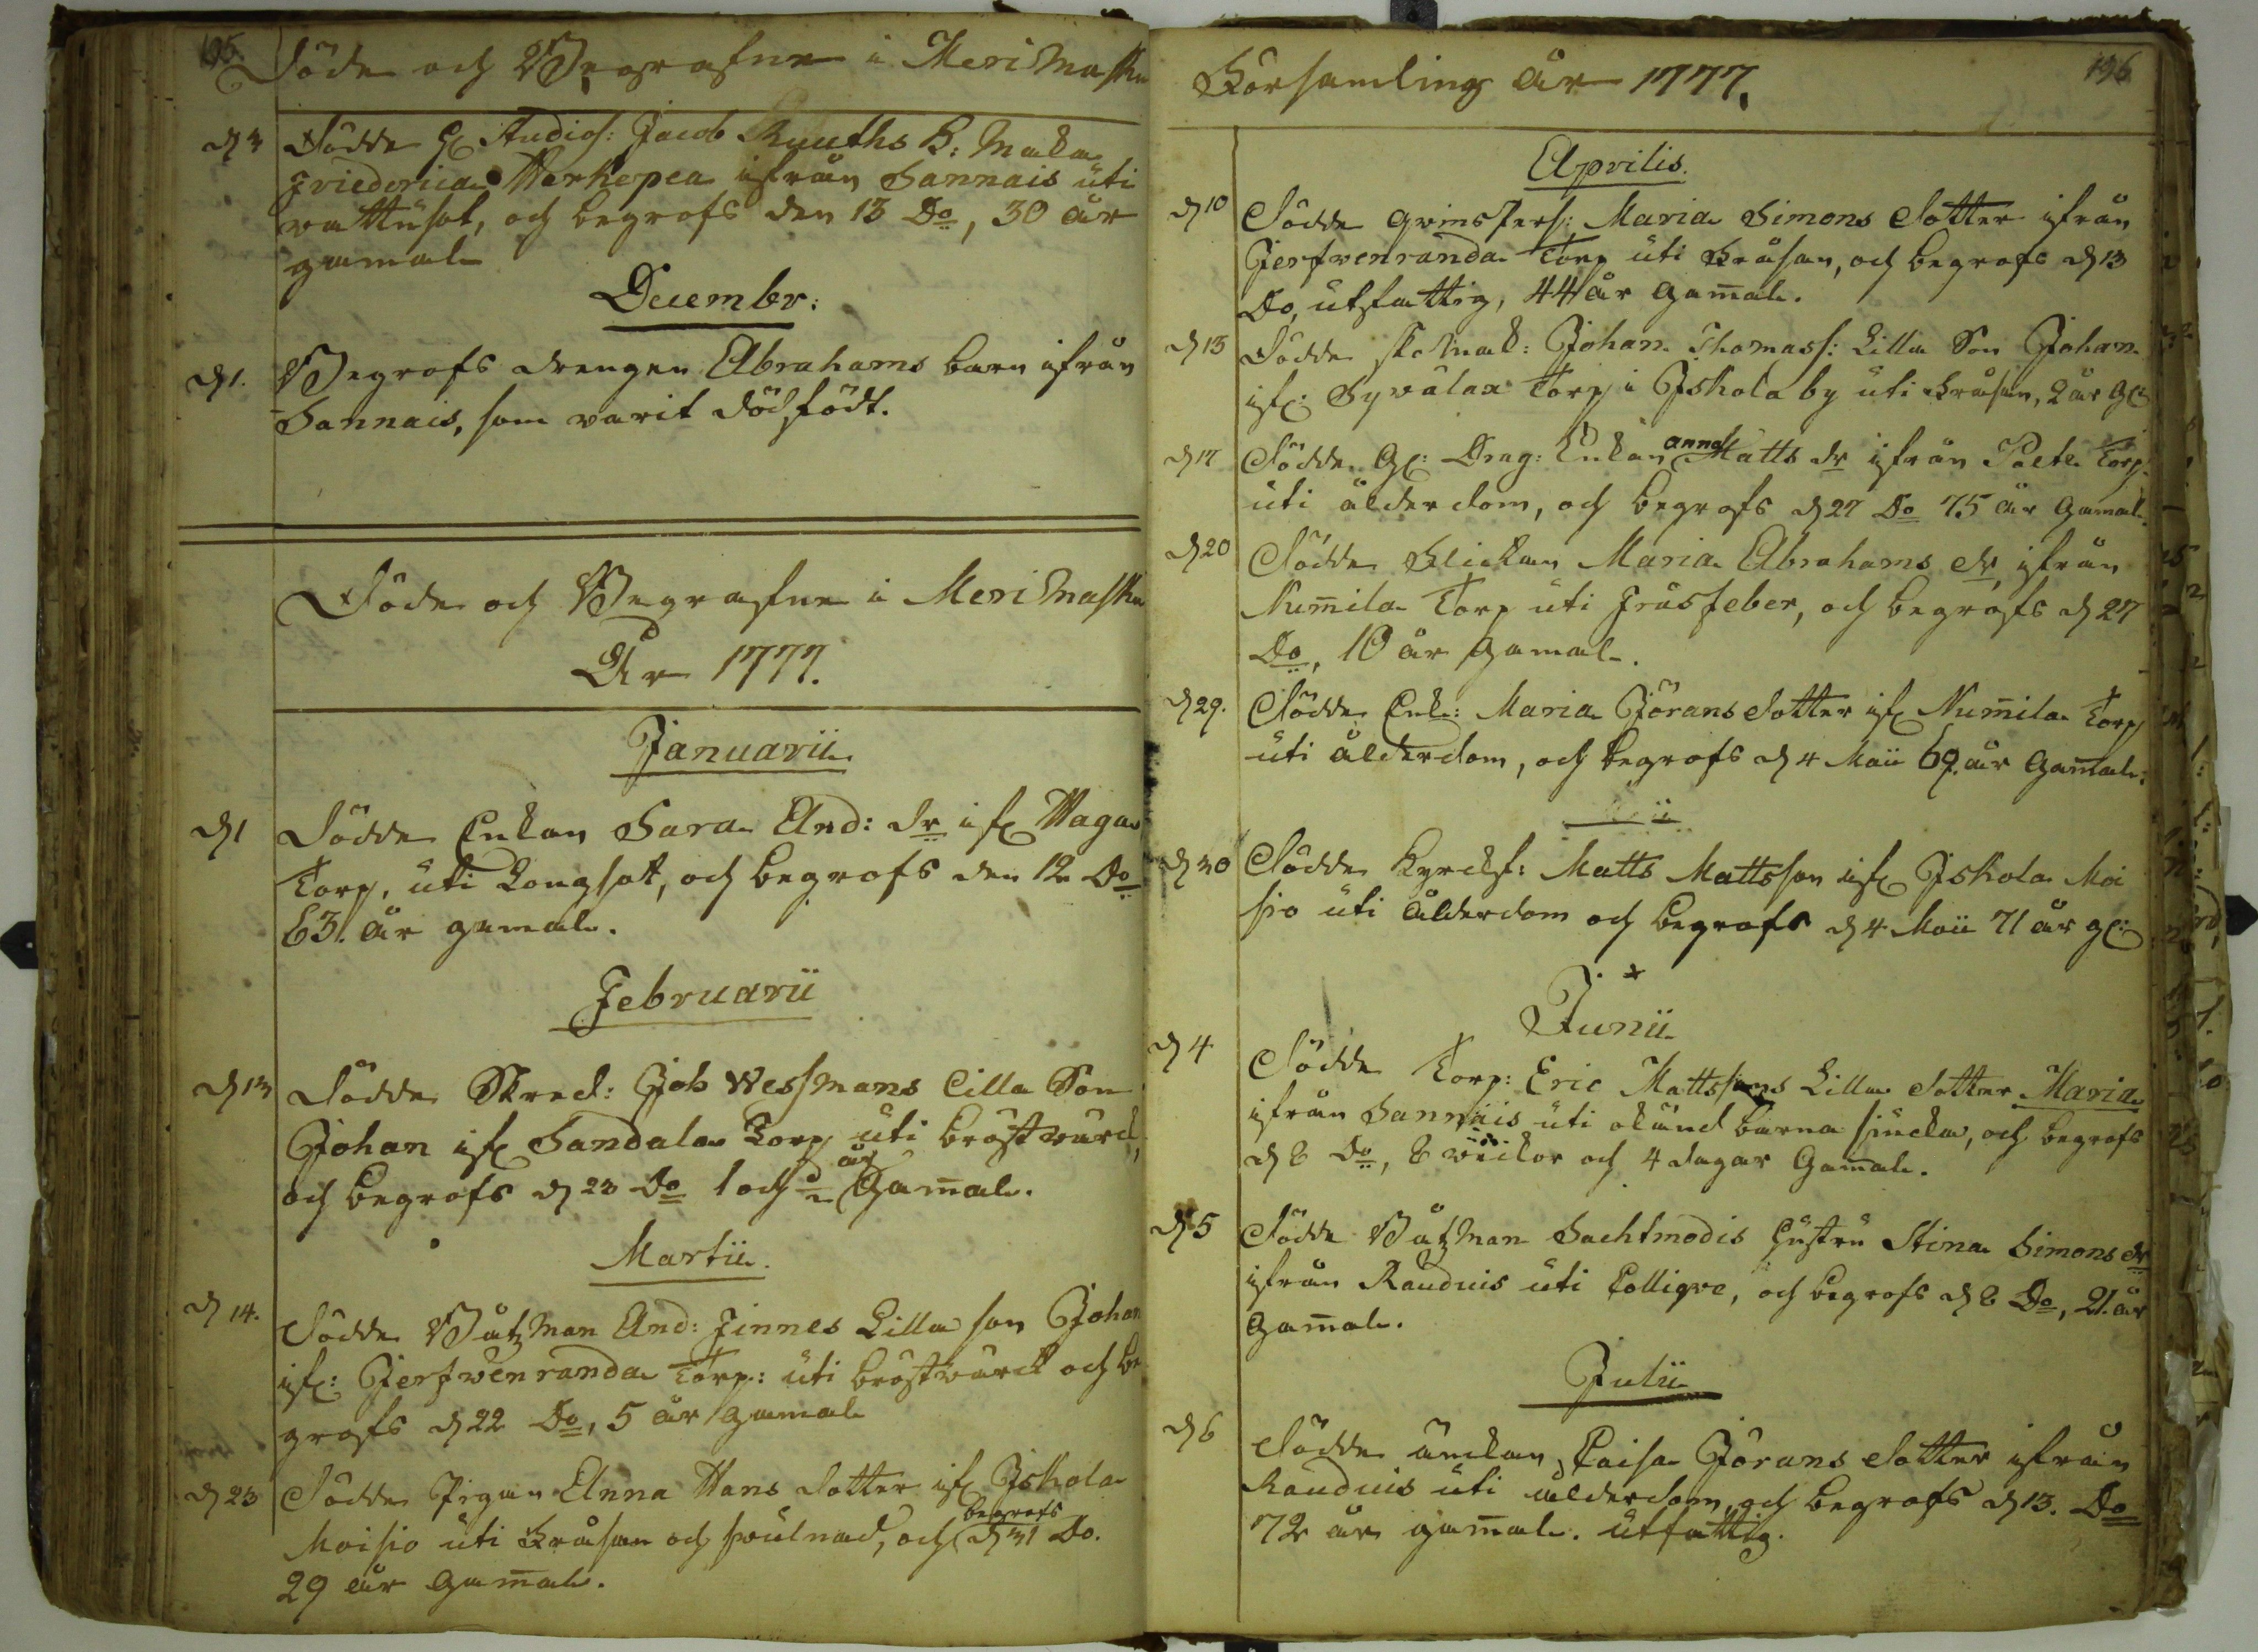 195.
Döde och Begrafne i Merimasku
d 3 Dödde H: Studios: Jacob Knuths K: Maka
Friedericia Warhopea ifrån Sannais uti
vattusot, och begrofs den 13 Do, 30 år
gamal
Decembr:
d 1. Begrofs drengen Abrahams barn ifrån
Sannais, som varit dödfödt.
Döde och Begrafne i Merimasku
År 1777.
Januarii
d 1 Dödde Enkan Sara And: dr if: Haga
Torp, uti Longsot, och begrofs den 12 Do
63. år gamal.
Februarii
d 13 Dödde Skred: Joh Wessmans Lilla Son
Johan if: Sandala Torp uti bröstwärck,
och begrofs d 23 Do 1 och år Gamal.
Martii.
d 14. Dödde Båtzman And: Finnes Lilla son Johan
if: Jerfwenranda Torp: uti bröstwärck och be
grofs d 22 Do, 5 år gamal
d 23 Dödde Pigan Anna Hans dotter if: Iskola
Moisio uti Bråsan och swulnad, och begrofs d 31 Do.
29 år Gamal.
196
Församling år 1777.
Aprilis.
d 10 Dödde Maria Simons dotter ifrån
Jerfwenranda Torp uti Bråsan, och begrofs d 13
Do, utfattig, 44 år Gamal.
d 13 Dödde Johan Thomass: Lilla Son Johan
if: Syvälax Torp i Iskola by uti Bråsan, 2 år Gl:
d 17 Dödde Gl: Drag: Enkan Anna Matts dr ifrån Torp
uti ålderdom, och begrofs d 27 Do 75 år Gamal.
d 20 Dödde Flickan Maria Abrahams dr, ifrån
Numila Torp uti Frusfeber, och begrofs d 27
Do, 10 år gamal.
d 29. Dödde Enk: Maria Jörans dotter if: Numila Torp
uti ålderdom, och begrofs d 4 Maii 69. år Gamal:
d 30 Dödde Kyrckf: Matts Mattsson if: Iskola Moi
sio uti ålderdom och begrofs d 4 Maii 71 år gl:
Junii
d 4 Dödde Torp: Eric Mattssons Lilla dotter Maria
ifrån Sannais uti okänd barna siucka, och begrofs
d 8 Do, 8 wickor och 4 dagar Gamal.
d 5 Dödde Båtzman Sachtmodis Hustru Stina Simons dr
ifrån Raudnis uti Collique, och begrofs d 8 Do, 21. år
Gamal.
Julii
d 6 Dödde änckan Caisa Jörans dotter ifrån
Raudnis uti ålderdom, och begrofs d 13. Do
72 år gamal. utfattig.